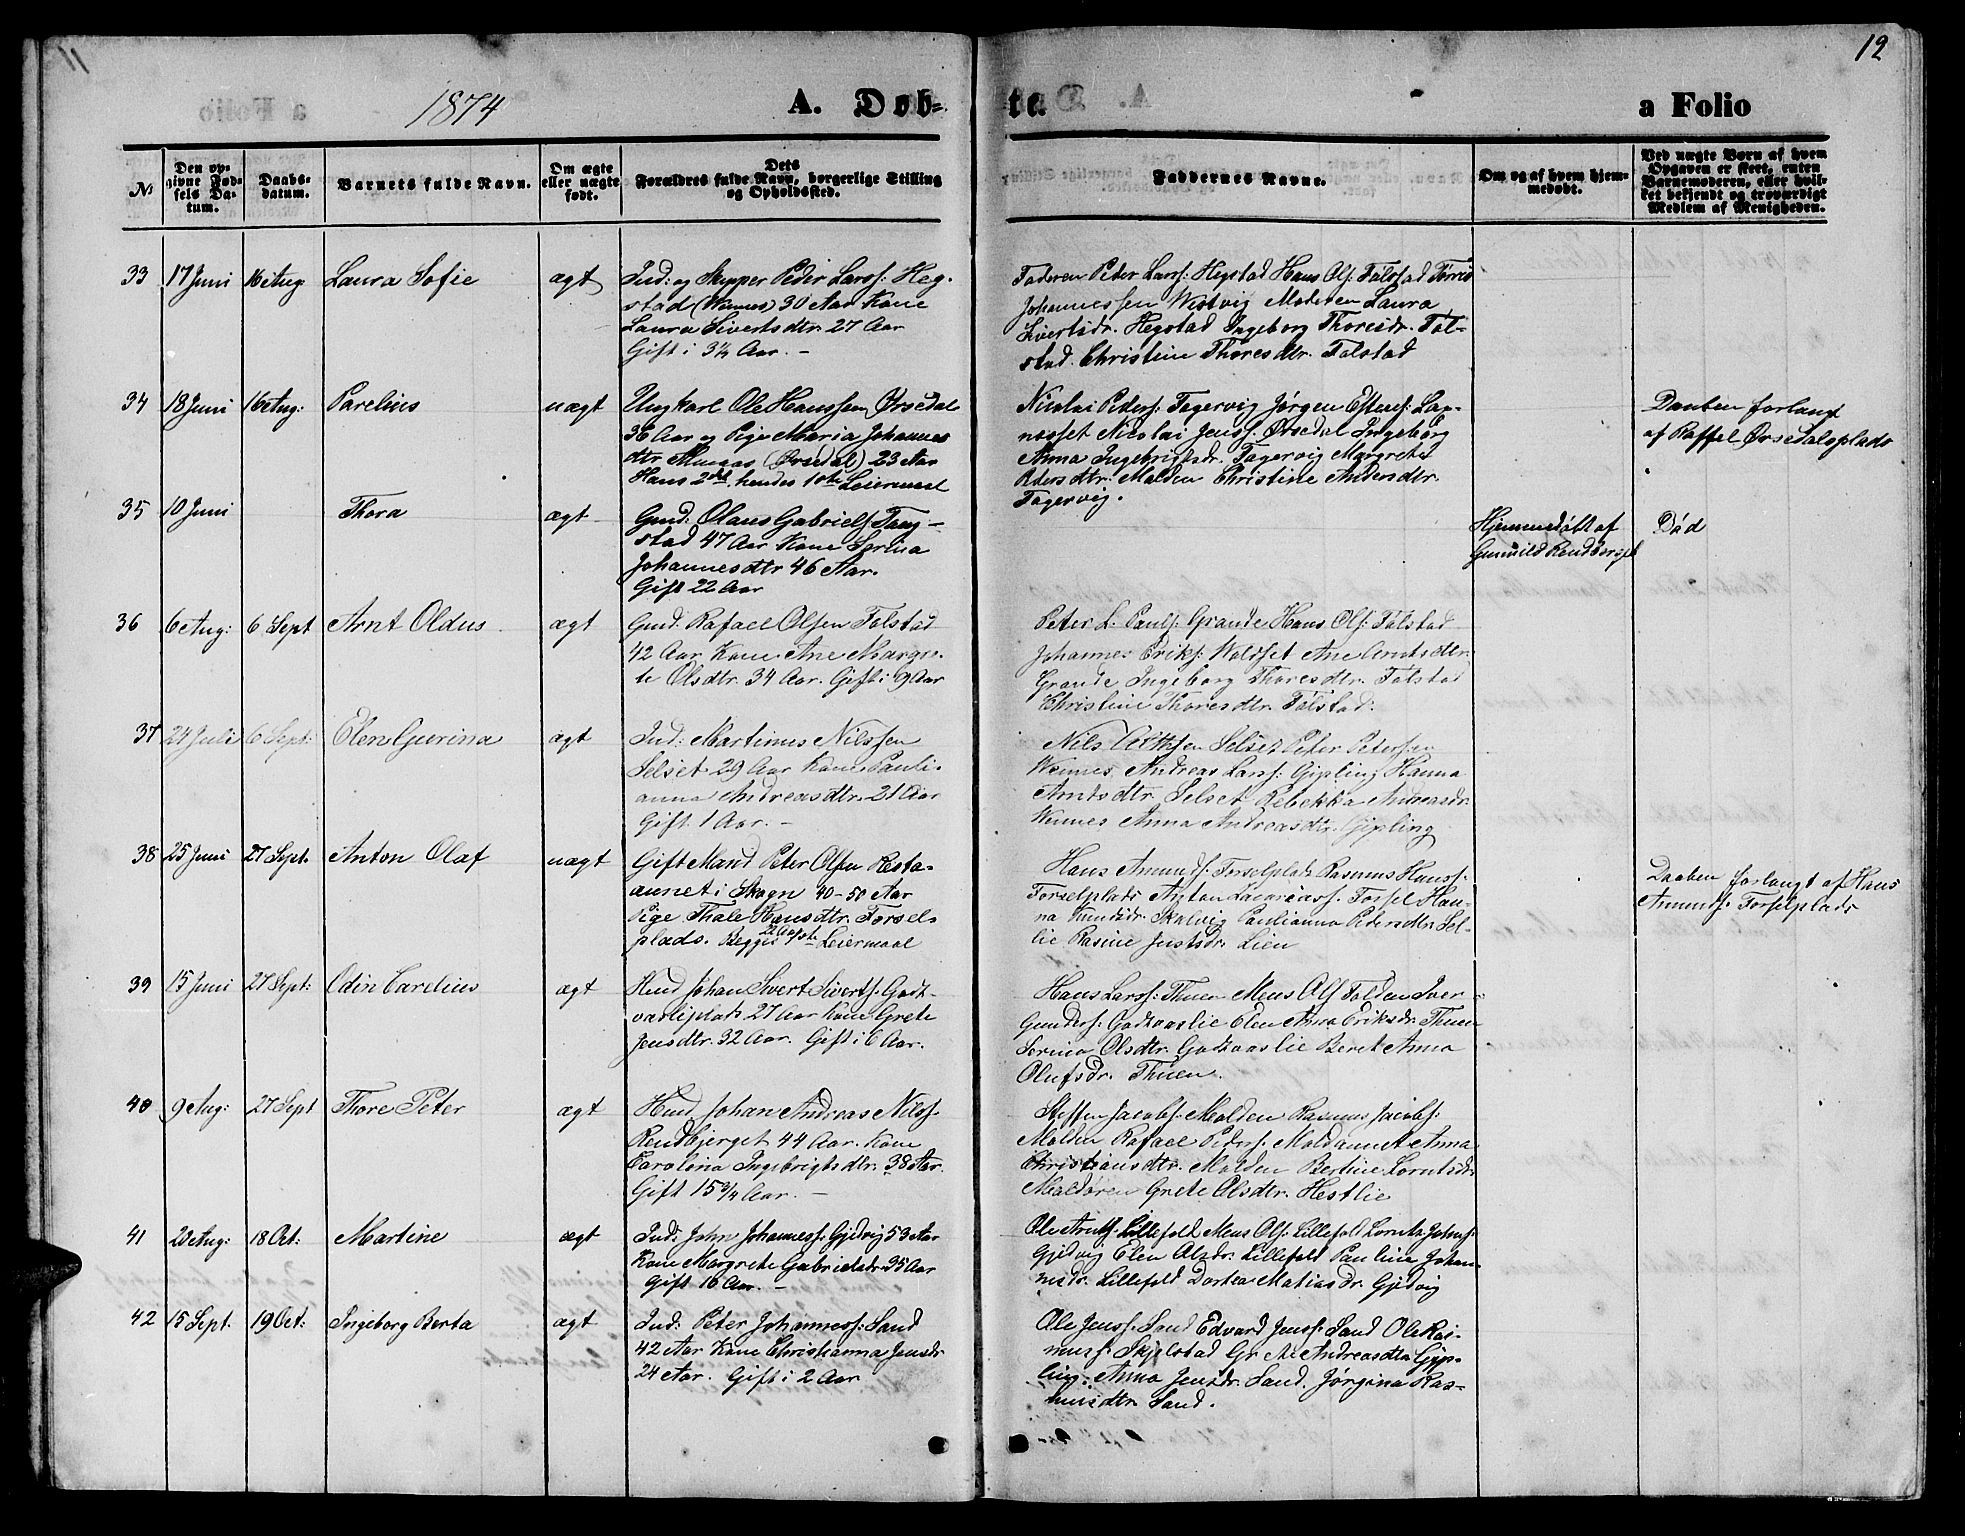 12
1874 A. Døb-
te a Folio
No
Den op-
givne Fød-
sels Da-
tum.
Daabs-
datum.
Barnets fulde Navn.
Om ægte
eller uægte
født.
Dets
Forældres fulde Navn, borgerlige Stilling
og Opholdssted.
Faddernes Navne.
Om og af hvem hjem-
medøbt.
Ved uægte Børn af hvem
Opgaven er skeet, enten
Barnemoderen, eller hvil-
ket bekjendt og troværdigt
Medlem af Menigheden.
33 17 Juni 16 Aug Laura Sofie ægt
Ind: og Skipper Peder Larss: Heg-
stad (Wennes) 30 Aar Kone
Laura Sivertsdtr. 27 Aar
Gift i 3½ Aar. -
Faderen Peter Larss: Hegstad Hans Ols: Falstad Tørris
Johannessen Westvig Moderen Laura
Sivertsdr. Hegstad Ingeborg Thoresdr. Fal-
stad. Christine Thoresdtr. Falstad
34 18 Juni 16 Aug: Parelius uægt
Ungkarl Ole Hanssen Ørsedal
36 Aar og Pige Maria Johannes
dtr (Ørsedal) 23 Aar
Hans 2det hendes 1ste Leiermaal
Nicolai Peders: Fagervig Jørgen
Nicolai Jenss: Ørsedal Ingeborg
Anna Ingebrigtsdr. Fagervig Margrete
Pedersdtr. Molden Christine Andersdtr.
Fagervig.
Daaben forlangt
af Raffel Ørsedalsplads
35 10 Juni Thora ægt
Gmd: Olaus Gabriels: Tang-
stad 47 Aar Kone Serina
Johannesdtr 46 Aar.
Gift 22 Aar
Hjemmedøbt af
Gunnild
Død
36 6 Aug: 6 Sept Arnt Oldus ægt
Gmd: Rafael Olsen Falstad
42 Aar Kone Ane Margre-
te Olsdtr. 34 Aar. Gift i 9 Aar
Peter L. Pauls: Grande Hans Ols: Falstad
Johannes Eriks: Woldset Ane Arntsdtr.
Grande Ingeborg Thoresdtr. Falstad
Christine Thoresdtr. Falstad.
37 24 Juli 6 Sept: Elen Gurina ægt
Ind: Martinus Nilssen
Selset 29 Aar Kone Pauli-
anna Andreasdtr. 21 Aar
Gift 1 Aar. -
Nils Selset Peter Petersen
Wennes Andreas Larss: Gipling Hanna
Arntsdtr. Selset Rebekka Andreasdr.
Wennes Anna Andreasdtr. Gipling
38 25 Juni 27 Sept. Anton Olaf uægt
Gift Mand Peter Olsen Resta-
aunet i Skogn 40-50 Aar
Pige Thale Hansdtr. Forsel-
plads. 22 Aar Begges 1ste Leiermaal
Hans Amunds: Forselplads Rasmus Hanss:
Forselplads Anton Forsel Han-
na Knudsdr. Skalvig Paulianna Pedersdtr. Sel-
lie Rasine Justsdr. Lien
Daaben forlangt af Hans
Amunds: Forselplads
39 15 Juni 27 Sept: Odin Carelius ægt
Hmd Johan Sivert Siverts: Godt-
vasliplads 27 Aar Kone Grete
Jensdtr. 32 Aar. Gift i 6 Aar.
Hans Larss: Thuen Mens Ols Folden Iver
Gunders: Godtvaslie Elen Anna Eriksdr. Thuen
Serina Olsdtr. Godtvaslie Beret Anna
Olufsdr. Thuen.
40 9 Aug: 27 Sept Thore Peter ægt
Hmd Johan Andreas Nilss:
Rendbjerget 44 Aar. Kone
Carolina Ingebrigtsdtr. 38 Aar.
Gift 15¾ Aar. -
Steffen Jacobs: Molden Rasmus Jacobs:
Molden Rafael Peders: Moldaunet Anna
Christiansdtr. Molden Bertine Lorntsdr.
Moldøren Grete Olsdtr. Hestlie
41 20 Aug: 18 Oct: Martine ægt
Ind: John Johanness: Gjidvig 53 Aar
Kone Margrete Gabrielsdr. 35 Aar
Gift 16 Aar. -
Ole Arnts: Lillefold Mens Ols: Lillefold Lornts Johns:
Gjidvig Elen Olsdr. Lillefold Pauline Johan-
nesdr. Lillefold Dortea Matiasdr. Gjidvig
42 15 Sept. 19 Oct: Ingeborg Berta ægt
Ind: Peter Johanness: Sand
42 Aar Kone Christianna Jensdr.
24 Aar. Gift i 2 Aar
Ole Jenss: Sand Edvard Jenss: Sand Ole Ras-
muss: Skjelstad Grete Andreasdtr. Gip-
ling. Anna Jensdr. Sand. Jørgina Ras-
musdtr. Sand.